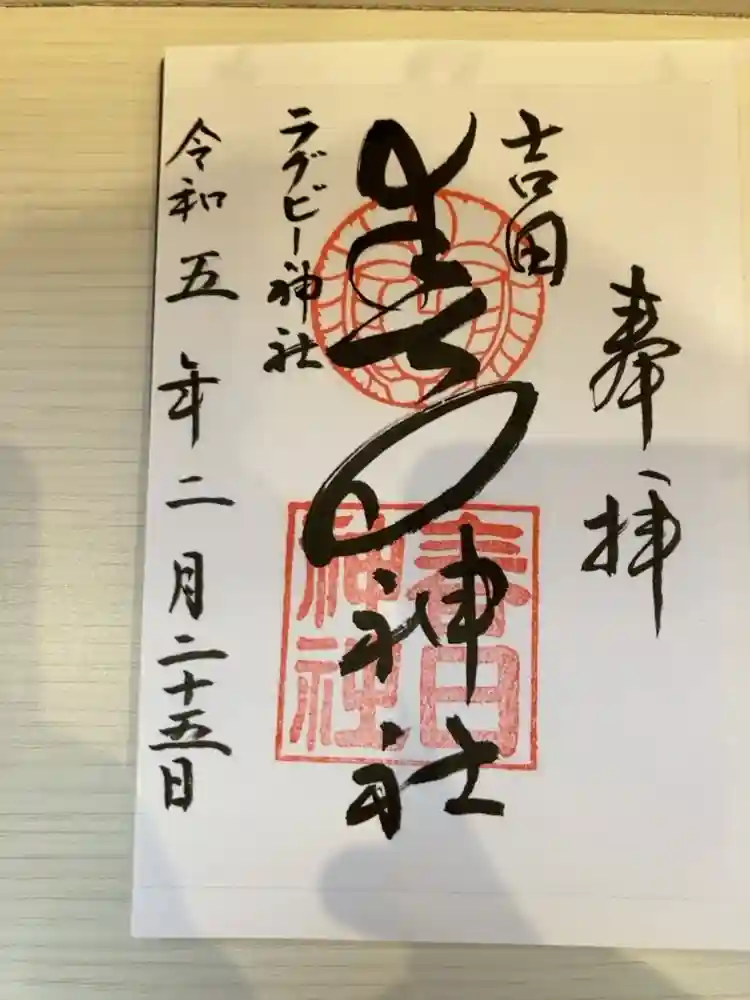 奉拝
吉田
春日神社
ラグビー神社
令和五年二月二十五日
春日
神社